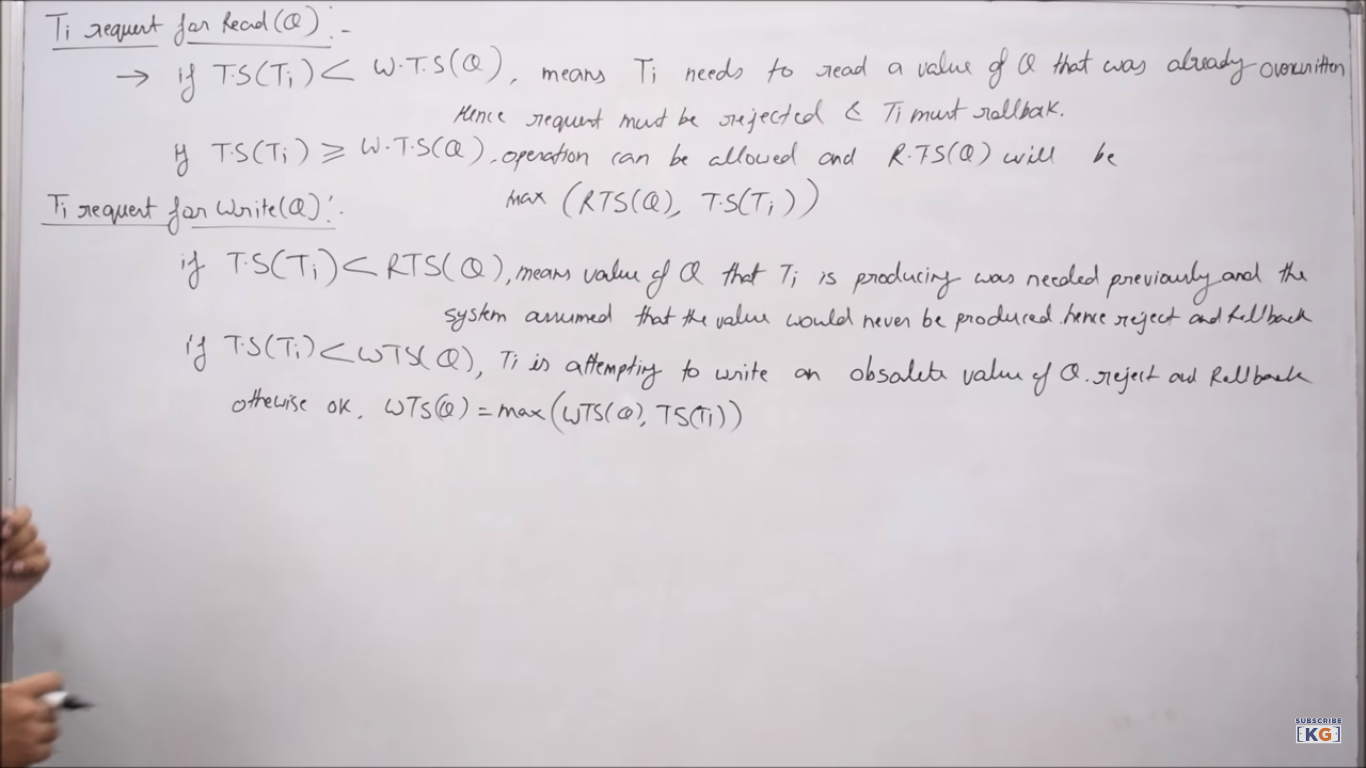 Ti request for Read(Q):-
→ if T.S(Ti) < W.T.S(Q), means Ti needs to read a value of Q that was already overwritten
Hence request must be rejected & Ti must rollbak.
If T.S(Ti) ≥ W.T.S(Q), operation can be allowed and R.TS(Q) will be
max (RTS(Q), T.S(Ti))
Ti request for Write(Q):-
if T.S(Ti) < RTS(Q), means value of Q that Ti is producing was needed previously and the
system assumed that the value would never be produced. hence reject and Rollback
if T.S(Ti) < WTS(Q), Ti is attempting to write an obsalete value of Q. reject and Rollback
othewise ok, WTS(Q) = max(WTS(Q), TS(Ti))
SUBSCRIBE
[KG]